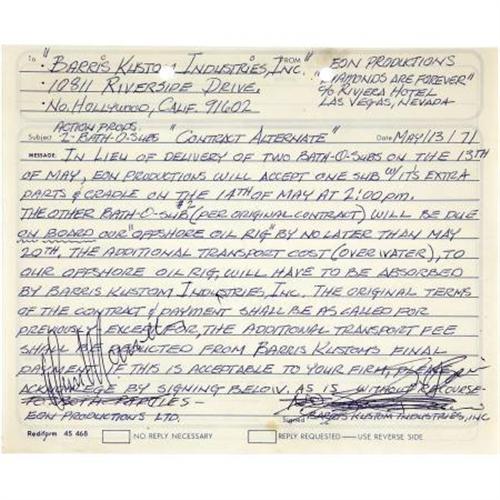 To "Barris Kustom Industries, Inc. FROM "EON PRODUCTIONS
10811 RIVERSIDE DRIVE. "DIAMONDS ARE FOREVER"
No. HOLLYWOOD, CALIF. 91602 c/o RIVIERA HOTEL
LAS VEGAS, NEVADA
ACTION PROPS
Subject 2-BATH-O-SUBS "CONTRACT ALTERNATE" Date MAY/13/71
MESSAGE: IN LIEU OF DELIVERY OF TWO BATH-O-SUBS ON THE 13TH
OF MAY, EON PRODUCTIONS WILL ACCEPT ONE SUB W/ITS EXTRA
PARTS & CRADLE ON THE 14TH OF MAY AT 2:00 pm.
THE OTHER BATH-O-SUB #2 (PER ORIGINAL CONTRACT) WILL BE DUE
ON BOARD OUR "OFFSHORE OIL RIG" BY NO LATER THAN MAY
20TH. THE ADDITIONAL TRANSPORT COST (OVER WATER), TO
OUR OFFSHORE OIL RIG, WILL HAVE TO BE ABSORBED
BY BARRIS KUSTOM INDUSTRIES, INC. THE ORIGINAL TERMS
OF THE CONTRACT & PAYMENT SHALL BE AS CALLED FOR
PREVIOUSLY EXCEPT FOR, THE ADDITIONAL TRANSPORT FEE
SHALL BE DEDUCTED FROM BARRIS KUSTOMS FINAL
PAYMENT. IF THIS IS ACCEPTABLE TO YOUR FIRM, PLEASE
ACKNOWLEDGE BY SIGNING BELOW. AS IS WITHOUT RECOURSE
TO BOTH PARTIES-
EON PRODUCTIONS LTD. Signed BARRIS KUSTOM INDUSTRIES, INC
Rediform 4S 468 NO REPLY NECESSARY REPLY REQUESTED—USE REVERSE SIDE